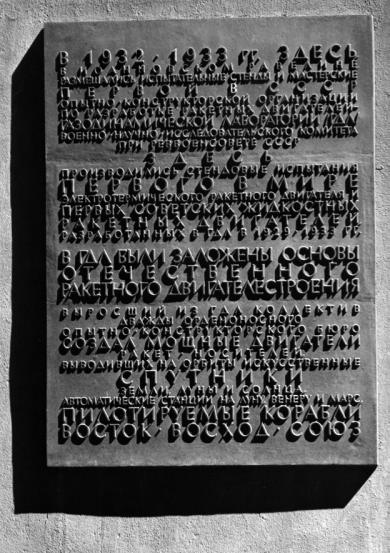 В 1932-1933 гг. ЗДЕСЬ
РАЗМЕЩАЛИСЬ ИСПЫТАТЕЛЬНЫЕ СТЕНДЫ И МАСТЕРСКИЕ
ПЕРВОЙ В СССР
ОПЫТНО-КОНСТРУКТОРСКОЙ ОРГАНИЗАЦИИ
ПО РАКЕТНЫМ ДВИГАТЕЛЯМ
ГАЗОДИНАМИЧЕСКОЙ ЛАБОРАТОРИИ /ГДЛ/
ВОЕННО-НАУЧНО-ИССЛЕДОВАТЕЛЬСКОГО КОМИТЕТА
ПРИ РЕВВОЕНСОВЕТЕ СССР
ЗДЕСЬ
ПРОИЗВОДИЛИСЬ СТЕНДОВЫЕ ИСПЫТАНИЕ
ПЕРВОГО В МИРЕ
ЭЛЕКТРОТЕРМИЧЕСКОГО РАКЕТНОГО ДВИГАТЕЛЯ И
ПЕРВЫХ СОВЕТСКИХ ЖИДКОСТНЫХ
РАКЕТНЫХ ДВИГАТЕЛЕЙ
РАЗРАБОТАННЫХ В ГДЛ В 1929-1933 гг.
В ГДЛ БЫЛИ ЗАЛОЖЕНЫ ОСНОВЫ
ОТЕЧЕСТВЕННОГО
РАКЕТНОГО ДВИГАТЕЛЕСТРОЕНИЯ
ВЫРОСШИЙ ИЗ ГДЛ КОЛЛЕКТИВ
ДВАЖДЫ ОРДЕНОНОСНОГО
ОПЫТНО-КОНСТРУКТОРСКОГО БЮРО
СОЗДАЛ МОЩНЫЕ ДВИГАТЕЛИ
РАКЕТ НОСИТЕЛЕЙ
ВЫВОДИВШИХ НА ОРБИТЫ ИСКУССТВЕННЫЕ
СПУТНИКИ
ЗЕМЛИ, ЛУНЫ И СОЛНЦА,
АВТОМАТИЧЕСКИЕ СТАНЦИИ НА ЛУНУ, ВЕНЕРУ И МАРС,
ПИЛОТИРУЕМЫЕ КОРАБЛИ
ВОСТОК ВОСХОД СОЮЗ